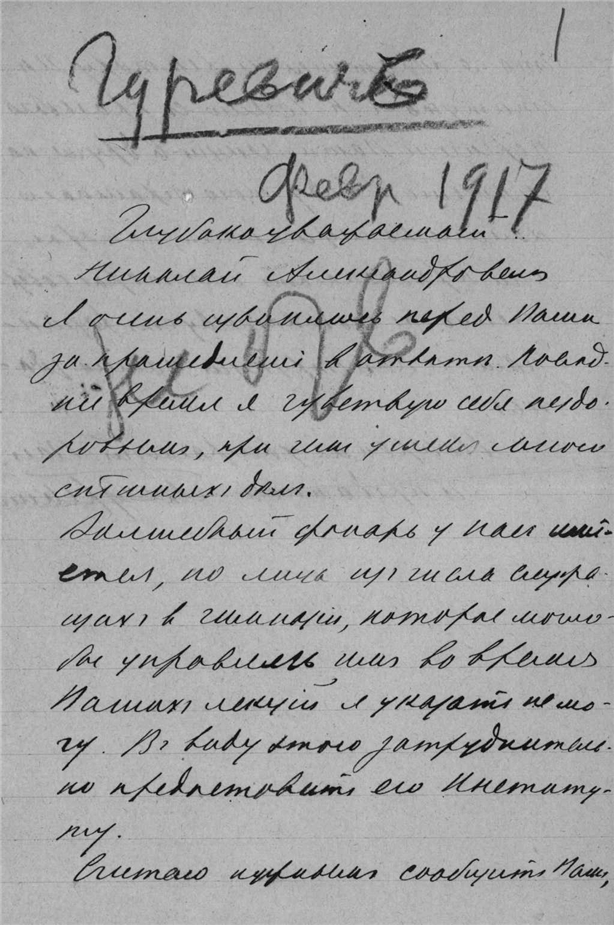 1
Гуревичъ
Февр 1917
Глубокоуважаемый
Николай Александровичъ
Я очень извиняюсь передъ Вами
за промедленіе в отвѣтѣ. Послѣд-
нее время я чувствую себя нездо-
ровымъ, при чемъ у меня много
спѣшныхъ дѣлъ.
Волшебный фонарь у насъ имѣ-
ется, но лицъ изъ числа служа-
щихъ в гимназіи, которое могло-
бы управлять имъ во время
Вашихъ лекцій я указать не мо-
гу. Въ виду этого затруднитель-
но предоставить его Институ-
ту.
Считаю нужнымъ сообщить Вамъ,